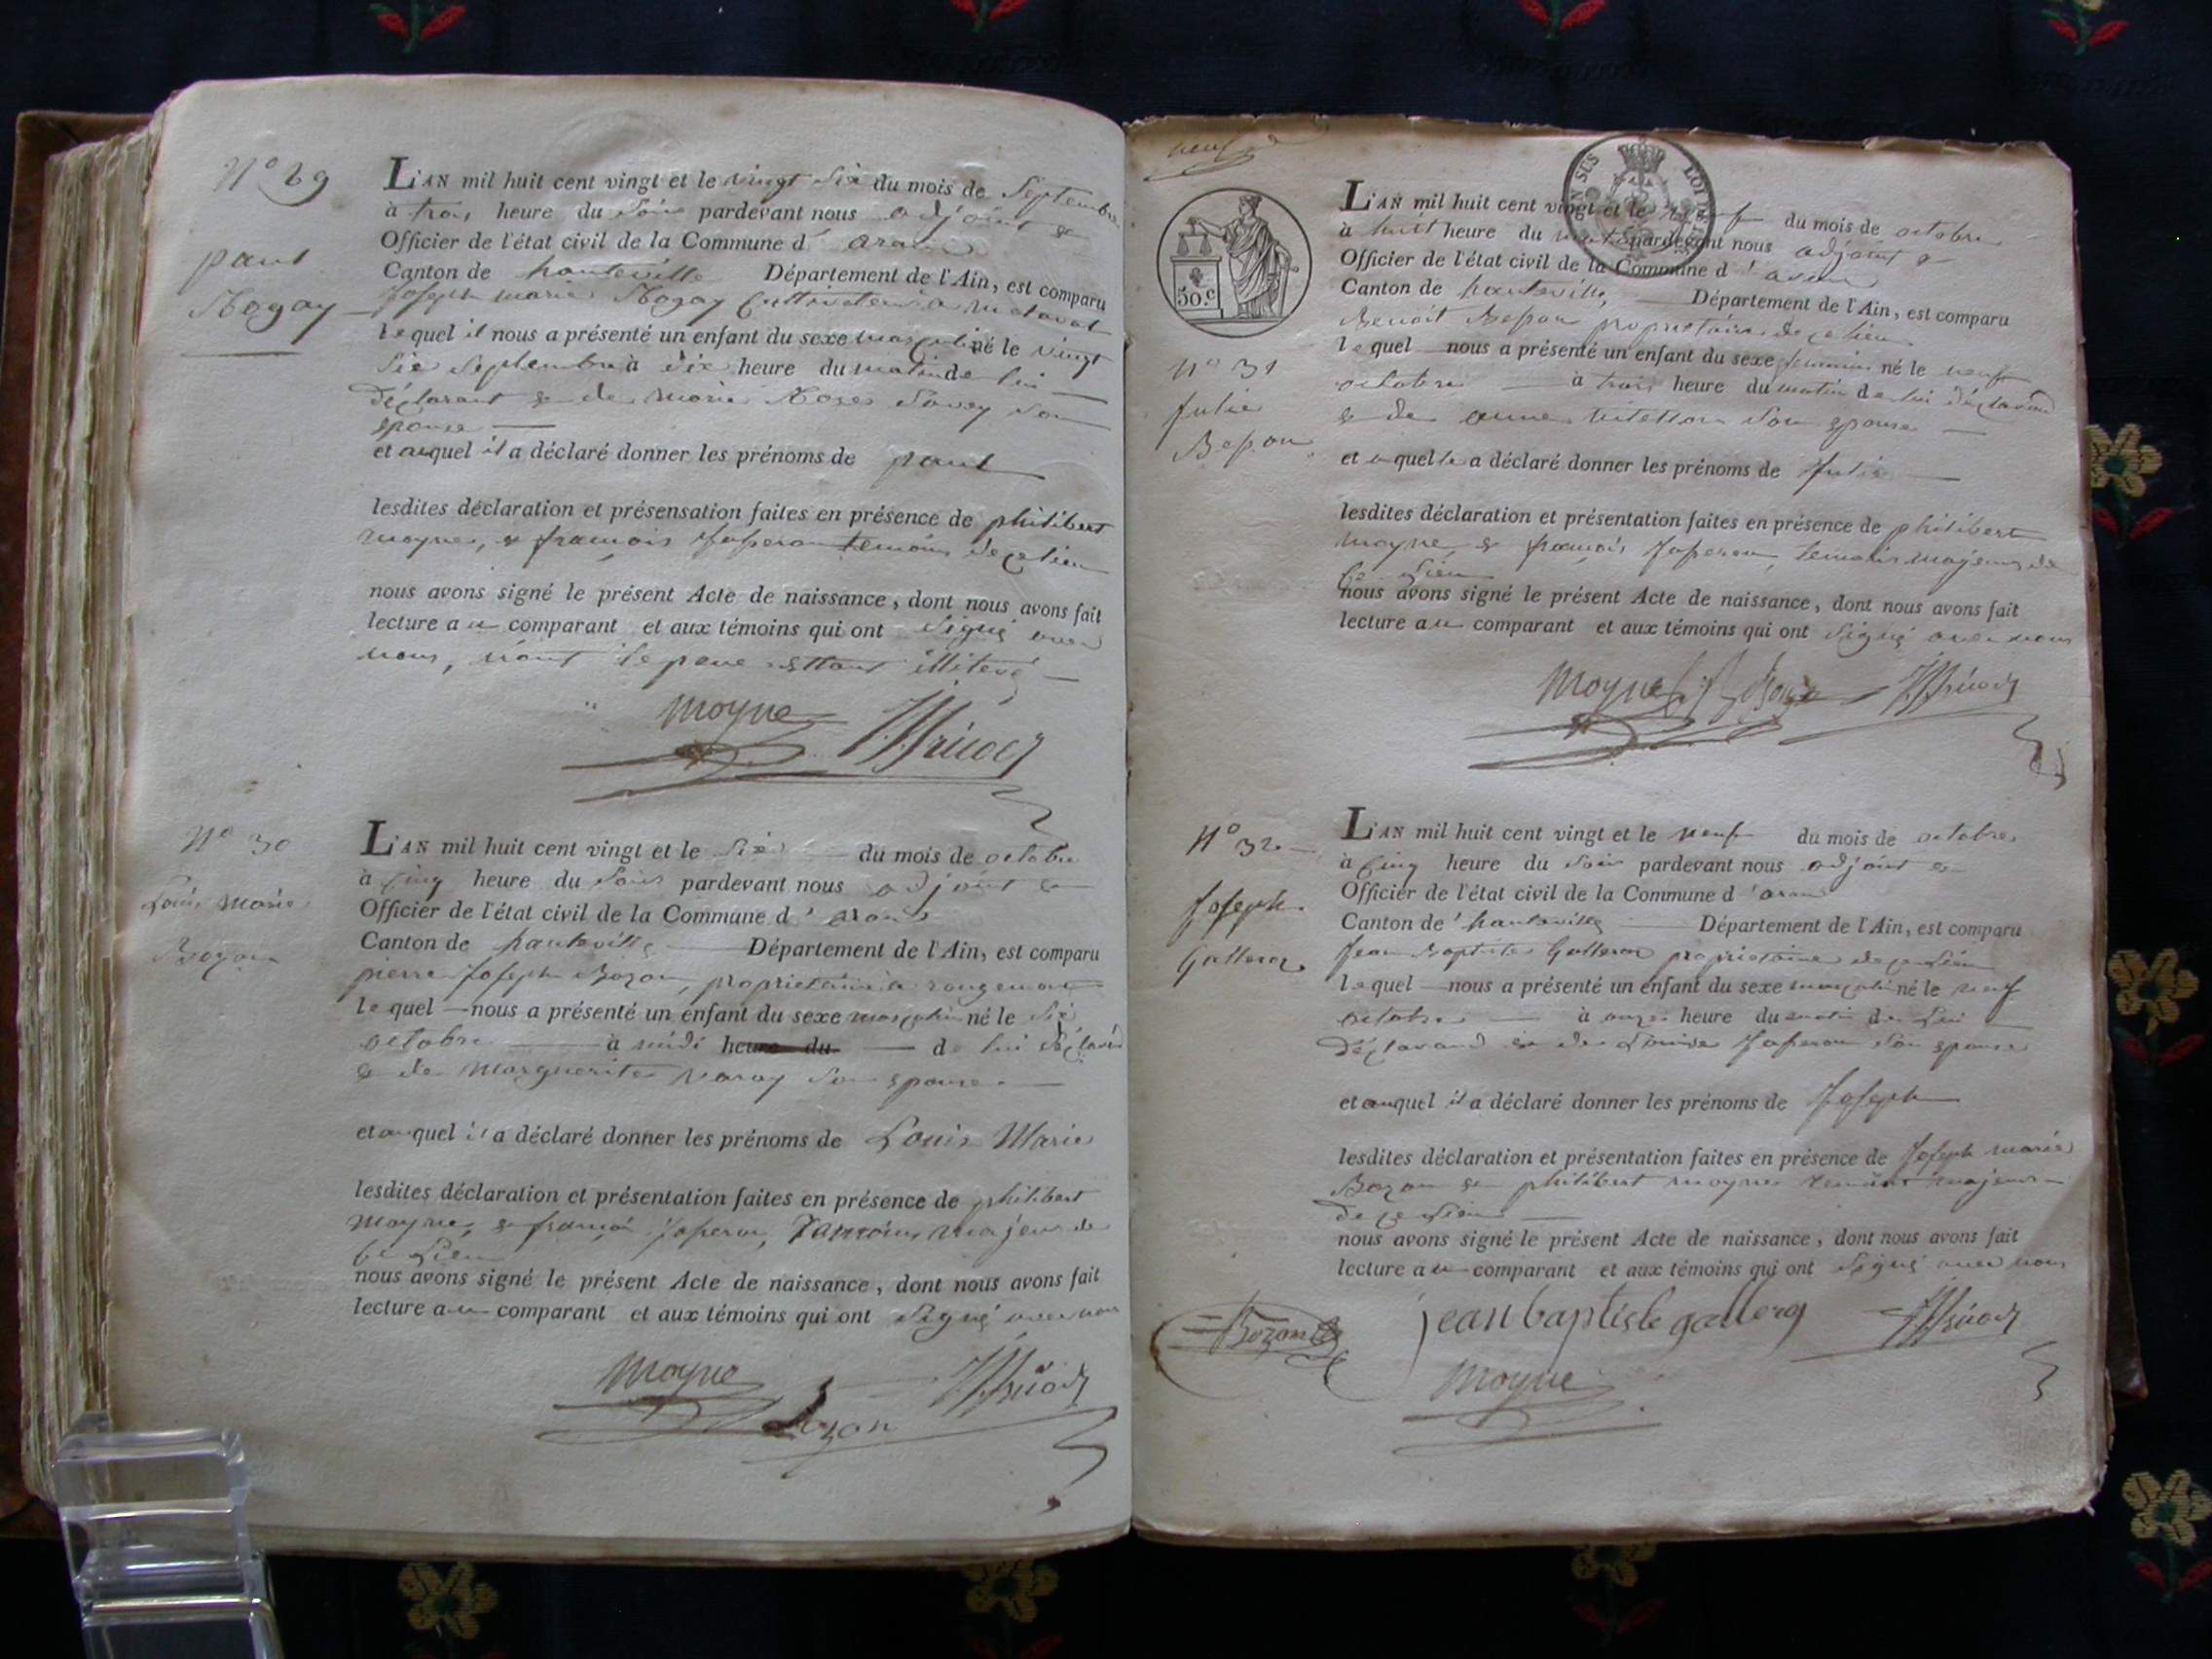 N° 29
paul
Nogay
L'AN mil huit cent vingt et le vingt Six du mois de Septembre
à trois heure du Soir pardevant nous adjoint &
Officier de l'état civil de la Commune d' aran
Canton de hauteville Département de l'Ain, est comparu
Joseph marie Cultivateur a
lequel il nous a présenté un enfant du sexe masculin né le vingt
Six Septembre à dix heure du matin de lui
déclarant & de marie Savey Son
epouse
et auquel il a déclaré donner les prénoms de paul
lesdites déclaration et présensation faites en présence de philibert
moyne, & françois temoins de ce lieu
nous avons signé le présent Acte de naissance, dont nous avons fait
lecture au comparant et aux témoins qui ont Signé avec
nous, le pere
moyne
N° 30
Louis Marie
Bozon
L'AN mil huit cent vingt et le Six du mois de octobre
à Cinq heure du Soir pardevant nous adjoint &
Officier de l'état civil de la Commune d' aran
Canton de hauteville Département de l'Ain, est comparu
pierre Joseph Bozon, proprietaire a rougemont
lequel nous a présenté un enfant du sexe masculin né le Six
octobre à midi heure du de lui déclarant
& de Marguerite Son epouse
et auquel il a déclaré donner les prénoms de Louis Marie
lesdites déclaration et présentation faites en présence de philibert
Moyne, & françois Temoins majeur de
Ce Lieu
nous avons signé le présent Acte de naissance, dont nous avons fait
lecture au comparant et aux témoins qui ont Signé avec nous
moyne
Bozon
neuf
50.c
N° 31
Julie
L'AN mil huit cent vingt et le neuf du mois de octobre
à huit heure du matin pardevant nous adjoint &
Officier de l'état civil de la Commune d' aran
Canton de hauteville, Département de l'Ain, est comparu
Benoit proprietaire de ce lieu
lequel nous a présenté un enfant du sexe feminin né le neuf
octobre à trois heure du matin de lui déclarand
& de anne Son epouse
et a quelle a déclaré donner les prénoms de Julie
lesdites déclaration et présentation faites en présence de philibert
moyne & françois temoins majeurs de
Ce Lieu
nous avons signé le présent Acte de naissance, dont nous avons fait
lecture au comparant et aux témoins qui ont Signé avec nous
Moyne
N° 32
Joseph
L'AN mil huit cent vingt et le neuf du mois de octobre
à Cinq heure du Soir pardevant nous adjoint &
Officier de l'état civil de la Commune d' aran
Canton de hauteville Département de l'Ain, est comparu
Jean Baptiste proprietaire de ce Lieu
lequel nous a présenté un enfant du sexe masculin né le neuf
octobre à onze heure du matin de Lui
déclarand & de Louise Son epouse
et auquel il a déclaré donner les prénoms de Joseph
lesdites déclaration et présentation faites en présence de Joseph marie
Bozon & philibert moyne temoins majeurs
de ce Lieu
nous avons signé le présent Acte de naissance, dont nous avons fait
lecture au comparant et aux témoins qui ont Signé avec nous
Bozon
jean baptiste
Moyne